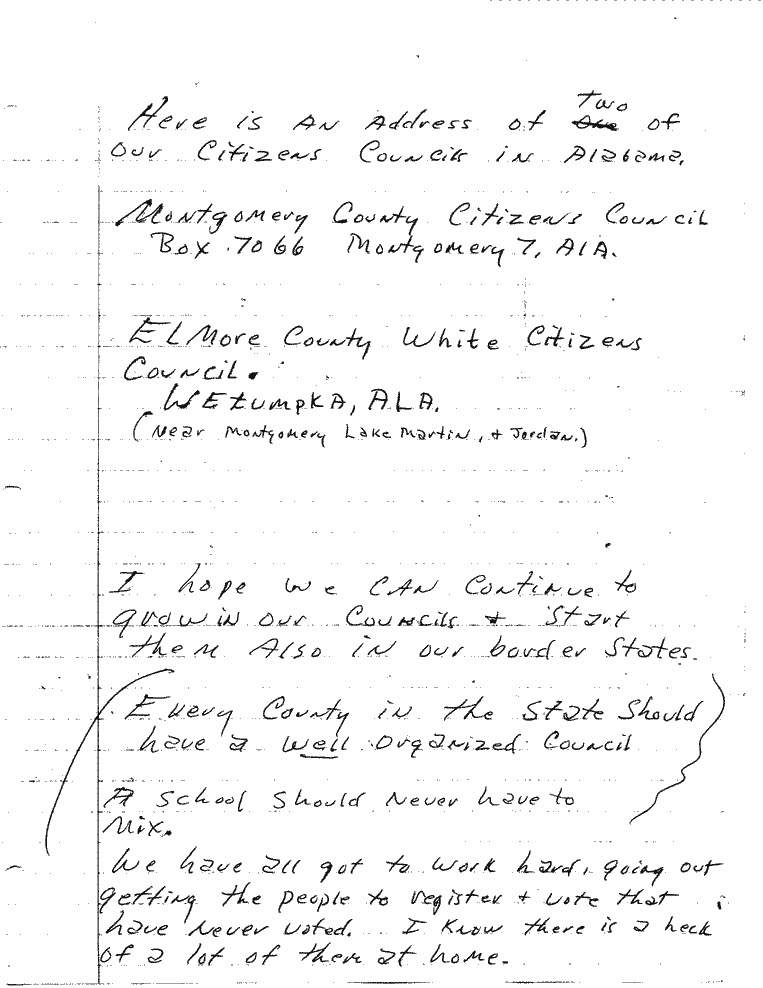 Two
Here is AN Address of One of
our Citizens Councils in Alabama.
Montgomery County Citizens Council
Box 7066 Montgomery 7, AlA.
ELMore County White Citizens
Council.
WEtumpkA, ALA.
(Near Montgomery Lake Martin, + Jordan.)
I hope we CAN Continue to
grow in our Councils + Start
them Also in our border States.
Every County in the State Should
have a well organized Council
A School Should Never have to
Mix.
We have all got to work hard, going out
getting the people to register + vote that
have Never voted. I Know there is a heck
of a lot of them at home.